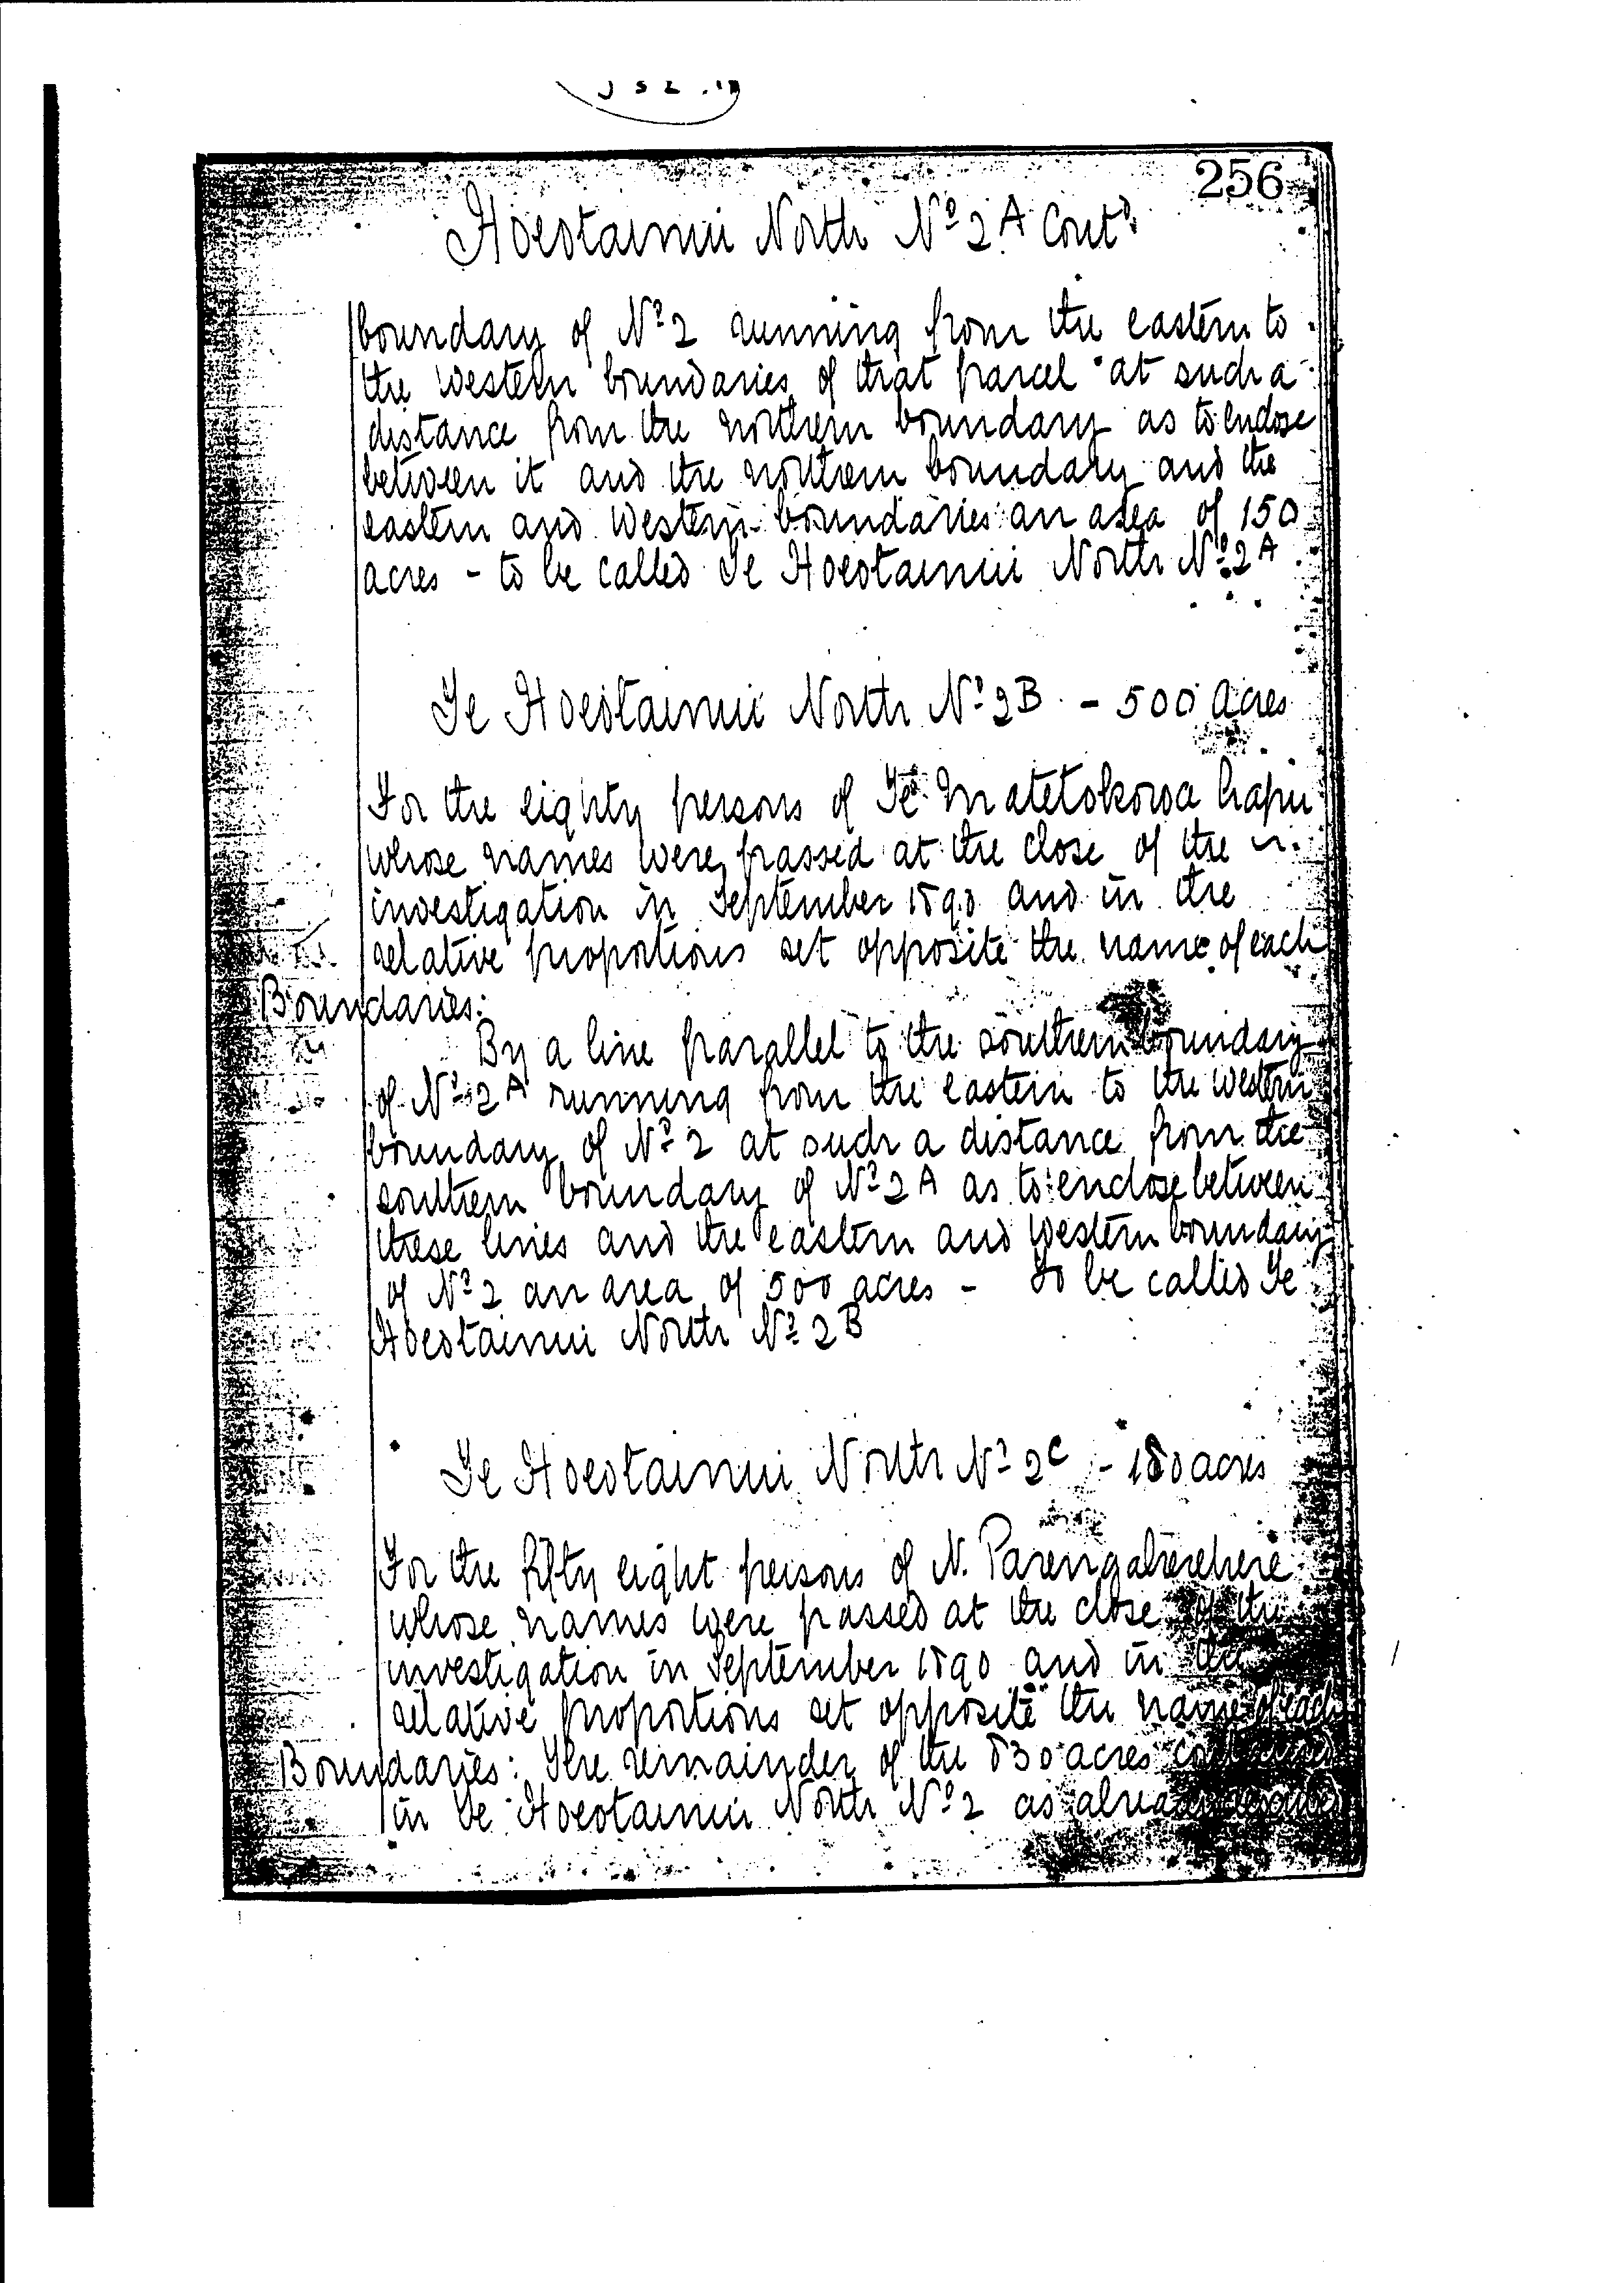 256
Hoeotainui North No 2A Contd
boundary of No 2 running from the eastern to
the western boundaries of that parcel at such a
distance from the northern boundary as to enclose
between it and the northern boundary and the
eastern and western boundaries an area of 150
acres - to be called Te Hoeotainui North No 2A
Te Hoeotainui North No 2B - 500 acres
For the eighty persons of Te Matetokoroa hapu
whose names were passed at the close of the
investigation in September 1890 and in the
relative proportions set opposite the name of each
Boundaries:
By a line parallel to the southern boundary
of No 2A running from the eastern to the western
boundary of No 2 at such a distance from the
southern boundary of No 2A as to enclose between
these lines and the eastern and western boundary
of No 2 an area of 500 acres - To be called Te
Hoeotainui North No 2B
Te Hoeotainui North No 2C - 180 acres
For the fifty eight persons of N.
whose names were passed at the close of the
investigation in September 1890 and in the
relative proportions set opposite the name of each
Boundaries: The remainder of the 830 acres
in Te Hoeotainui North No 2 as already